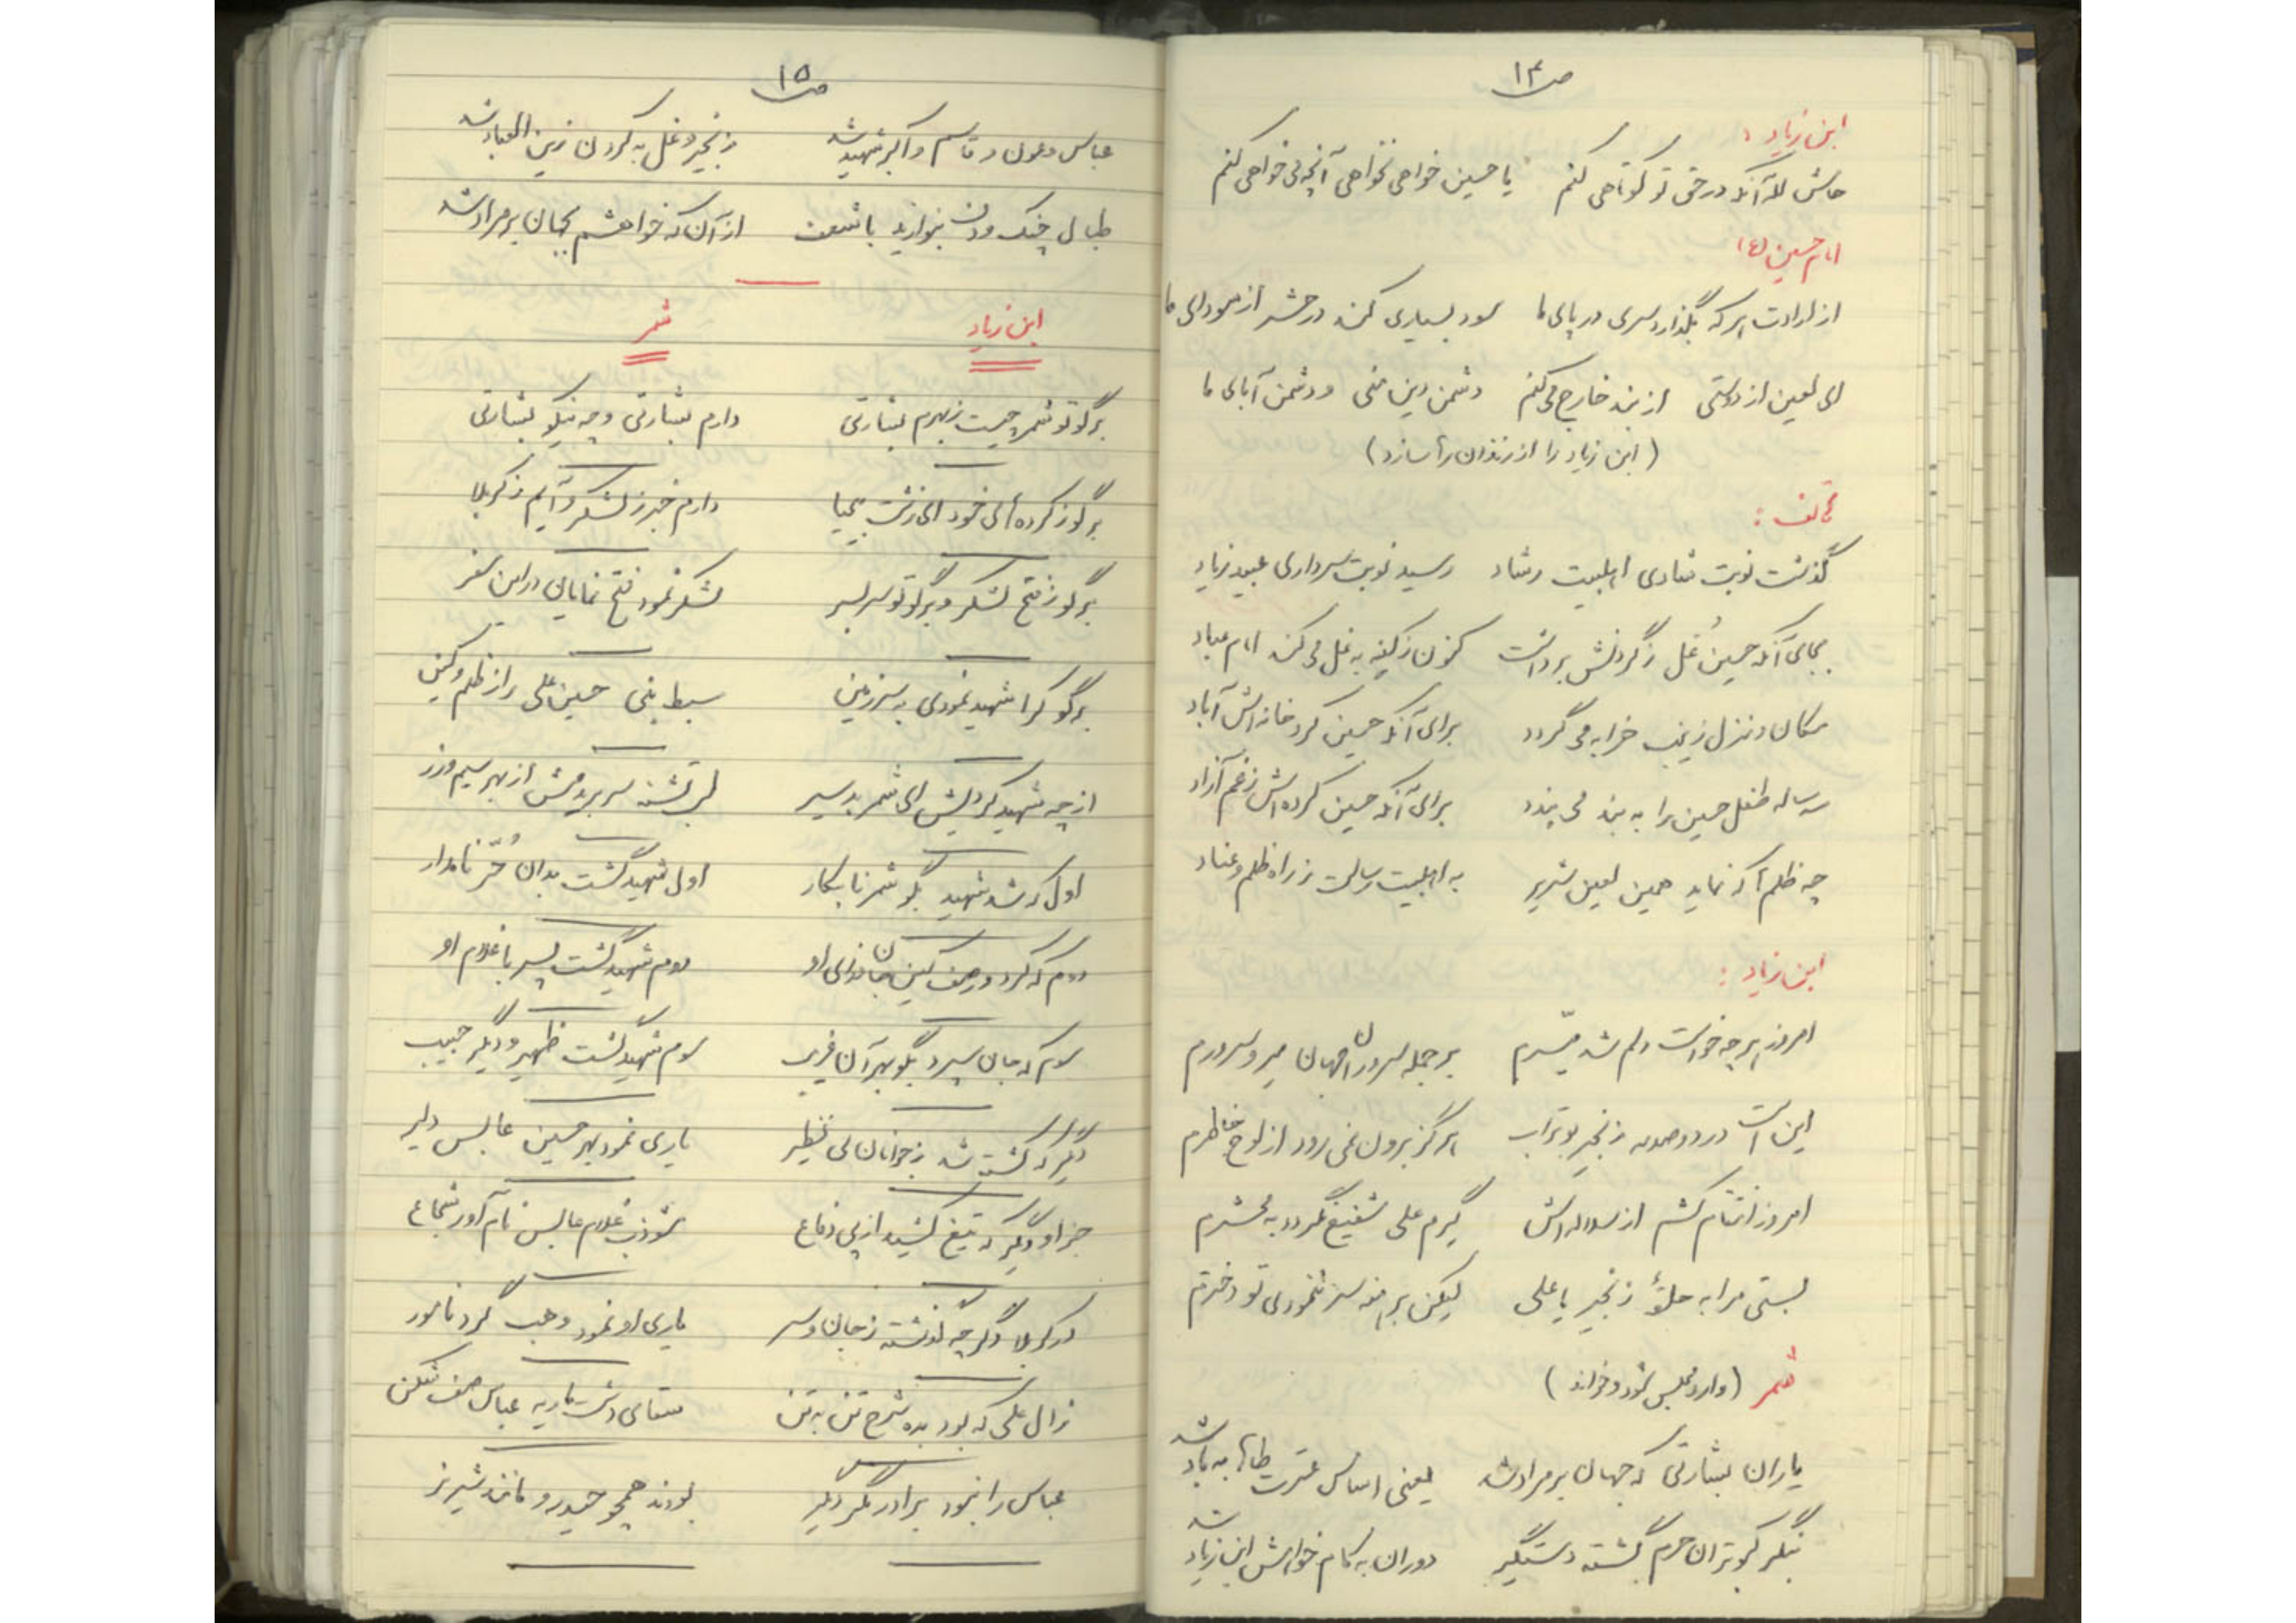 ص ۱۴
ابن زیاد :
حاش لله آنکه در حق تو کوتاهی کنم یا حسین خواهی نخواهی آنچه می خواهی کنم
امام حسین (ع)
از ارادت هر که بگذارد سری در پای ما سود بسیاری کند در حشر از سودای ما
ای لعین از دوستی از بند خارج می کنم دشمن دین منی و دشمن آبای ما
(ابن زیاد را از زندان رها سازد)
هاتف :
گذشت نوبت شادی اهلبیت رشاد رسید نوبت سرداری عبید زیاد
بجای آنکه حسین غُل ز گردنش برداشت کنون ز کینه به غل می کند امام عباد
مکان و منزل زینب خرابه می گردد برای آنکه حسین کرد خانه اش آباد
سه ساله طفل حسین را به بند می بندد برای آنکه حسین کرده اش ز غم آزاد
چه ظلم ها که نماید همین لعین شریر به اهلبیت رسالت ز راه ظلم و عناد
ابن زیاد :
امروز هر چه خواست دلم شد میسّرم بر جمله سروران جهان میر و سرورم
این است درد و صدمه زنجیر بوتراب هرگز برون نمی رود از لوح خاطرم
امروز انتقام کشم از سلاله اش گیرم علی شفیع نگردد به محشرم
بستی مرا به حلقهٔ زنجیر یا علی لیکن برهنه سر ننمودی تو دخترم
شمر (وارد مجلس شود و خواند)
یاران بشارتی که جهان بر مراد شد یعنی اساس عترت طاها به باد شد
بنگر کبوتران حرم گشته دستگیر دوران به کام خواهش ابن زیاد شد
ص ۱۵
عباس و عون و قاسم و اکبر شهید شد زنجیر و غل به گردن زین العباد شد
طبال چنگ و دف بنوازید با شعف از آن که خواهشم بجهان بر مراد شد
ابن زیاد شمر
برگو تو شمر چیست ز بهرم بشارتی دارم بشارتی و چه نیکو بشارتی
برگو ز کرده های خود ای زشت بی حیا دارم خبر ز لشکر و آیم ز کربلا
برگو ز فتح لشکر و برگو تو سر بسر لشکر نمود فتح نمایان در این سفر
برگو کرا شهید نمودی به سرزمین سبط نبی حسین علی را ز ظلم و کین
از چه شهید کردیش ای شمر بد سیر لب تشنه سر بریدمش از بهر سیم و زر
اول که شد شهید بگو شمر نابکار اول شهید گشت بدان حُرّ نامدار
دوم که کرد در صف کین جان فدای او دوم شهید گشت پسر با غلام او
سوم که جان سپرد بگو بهر آن غریب سوم شهید گشت ظهیر و دیگر حبیب
دیگر که کشته شد ز جوانان بی نظیر یاری نمود بهر حسین عابس دلیر
جز او دیگر که تیغ کشید از پی دفاع شوذب غلام عابس نام آور شجاع
در کربلا دگر چه گذشته ز جان و سر یاری او نمود وهب گرد نامور
ز آل علی که بود بده شرح تن به تن سقای دشت ماریه عباس صف شکن
عباس را نبود برادر مگر دیگر بودند همچو حیدر و مانند شیر نر